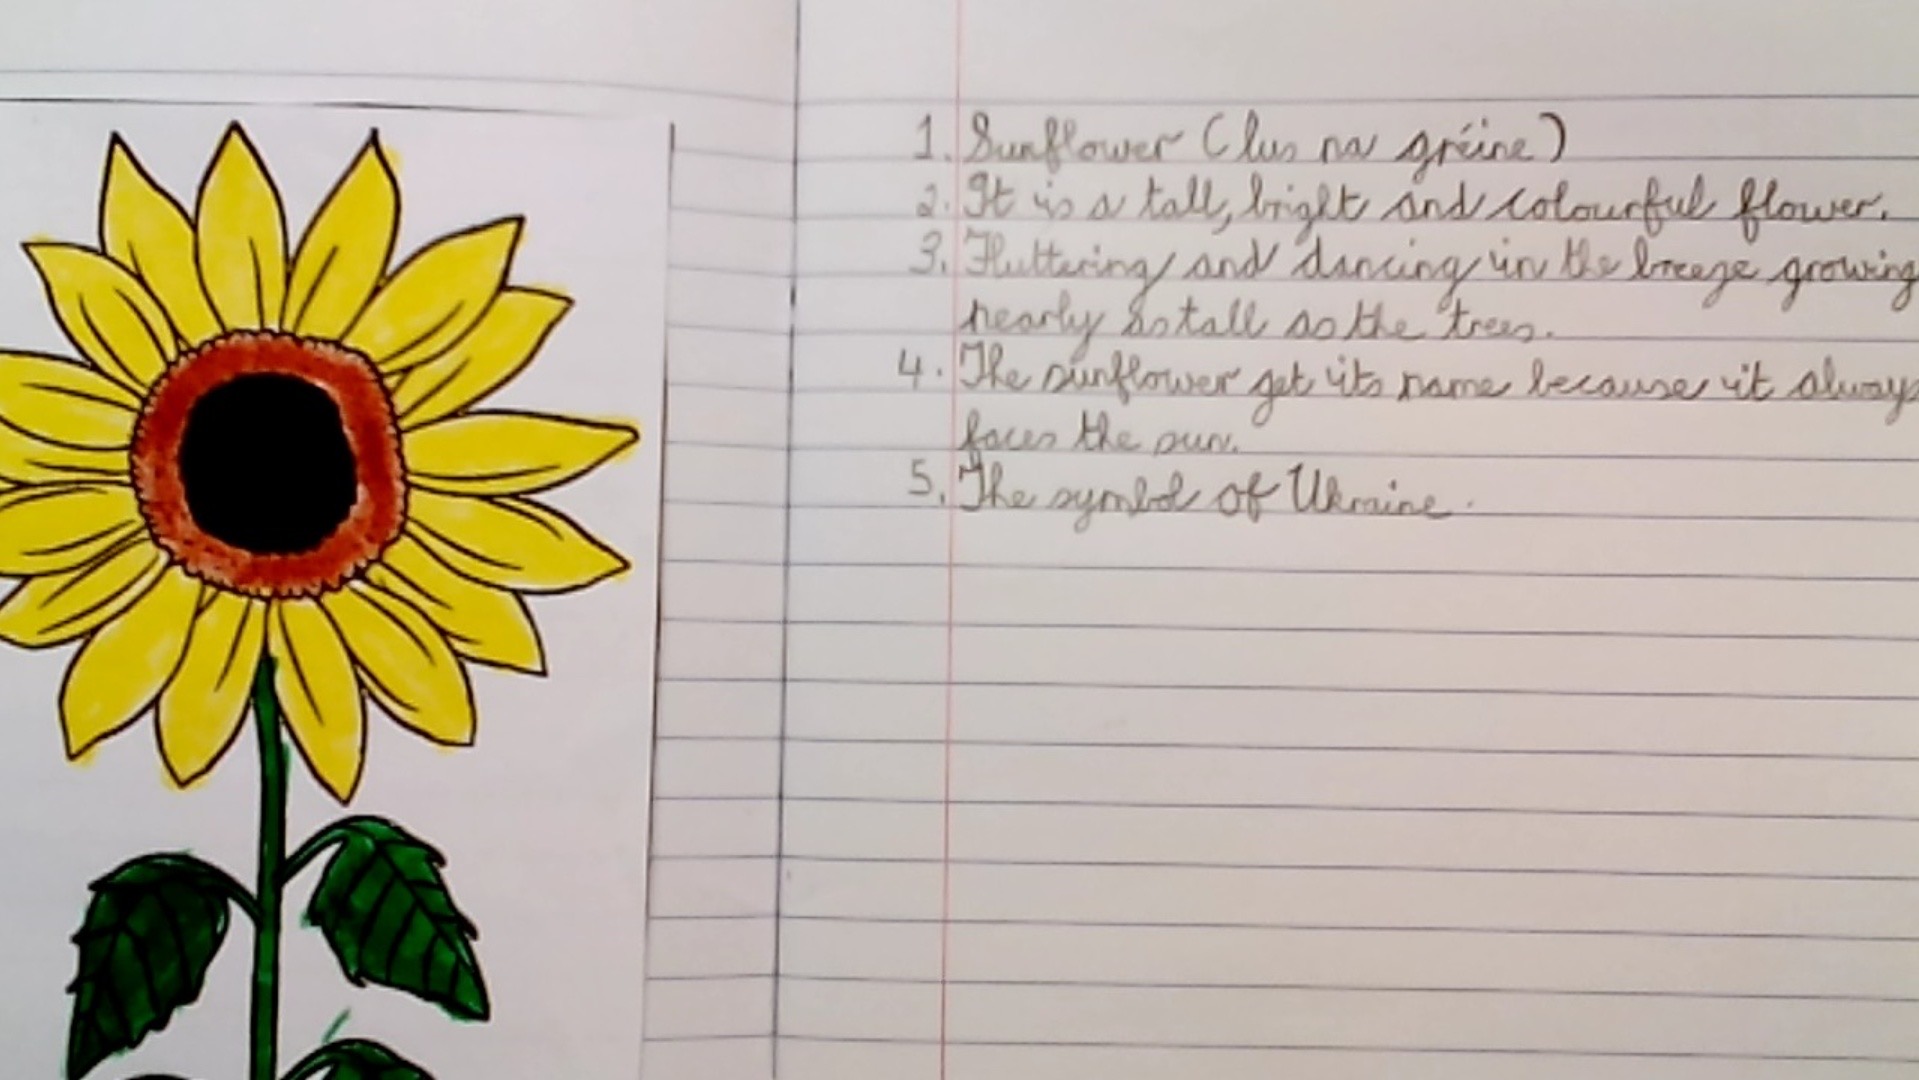 1. Sunflower (lus na gréine)
2. It is a tall, bright and colourful flower.
3. Fluttering and dancing in the breeze growing
nearly as tall as the trees.
4. The sunflower get its name because it always
faces the sun.
5. The symbol of Ukraine.